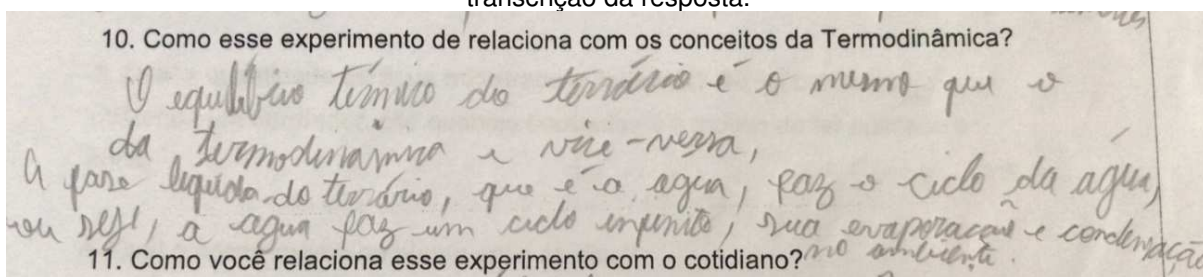 transcrição da resposta.
10. Como esse experimento de relaciona com os conceitos da Termodinâmica?
O equilibrio térmico do terrário é o mesmo que o
da termodinamica e vice-versa,
A fase liquida do terrário, que é a agua, faz o ciclo da agua,
ou seje, a agua faz um ciclo infinito, sua evaporação e condensação
no ambiente.
11. Como você relaciona esse experimento com o cotidiano?